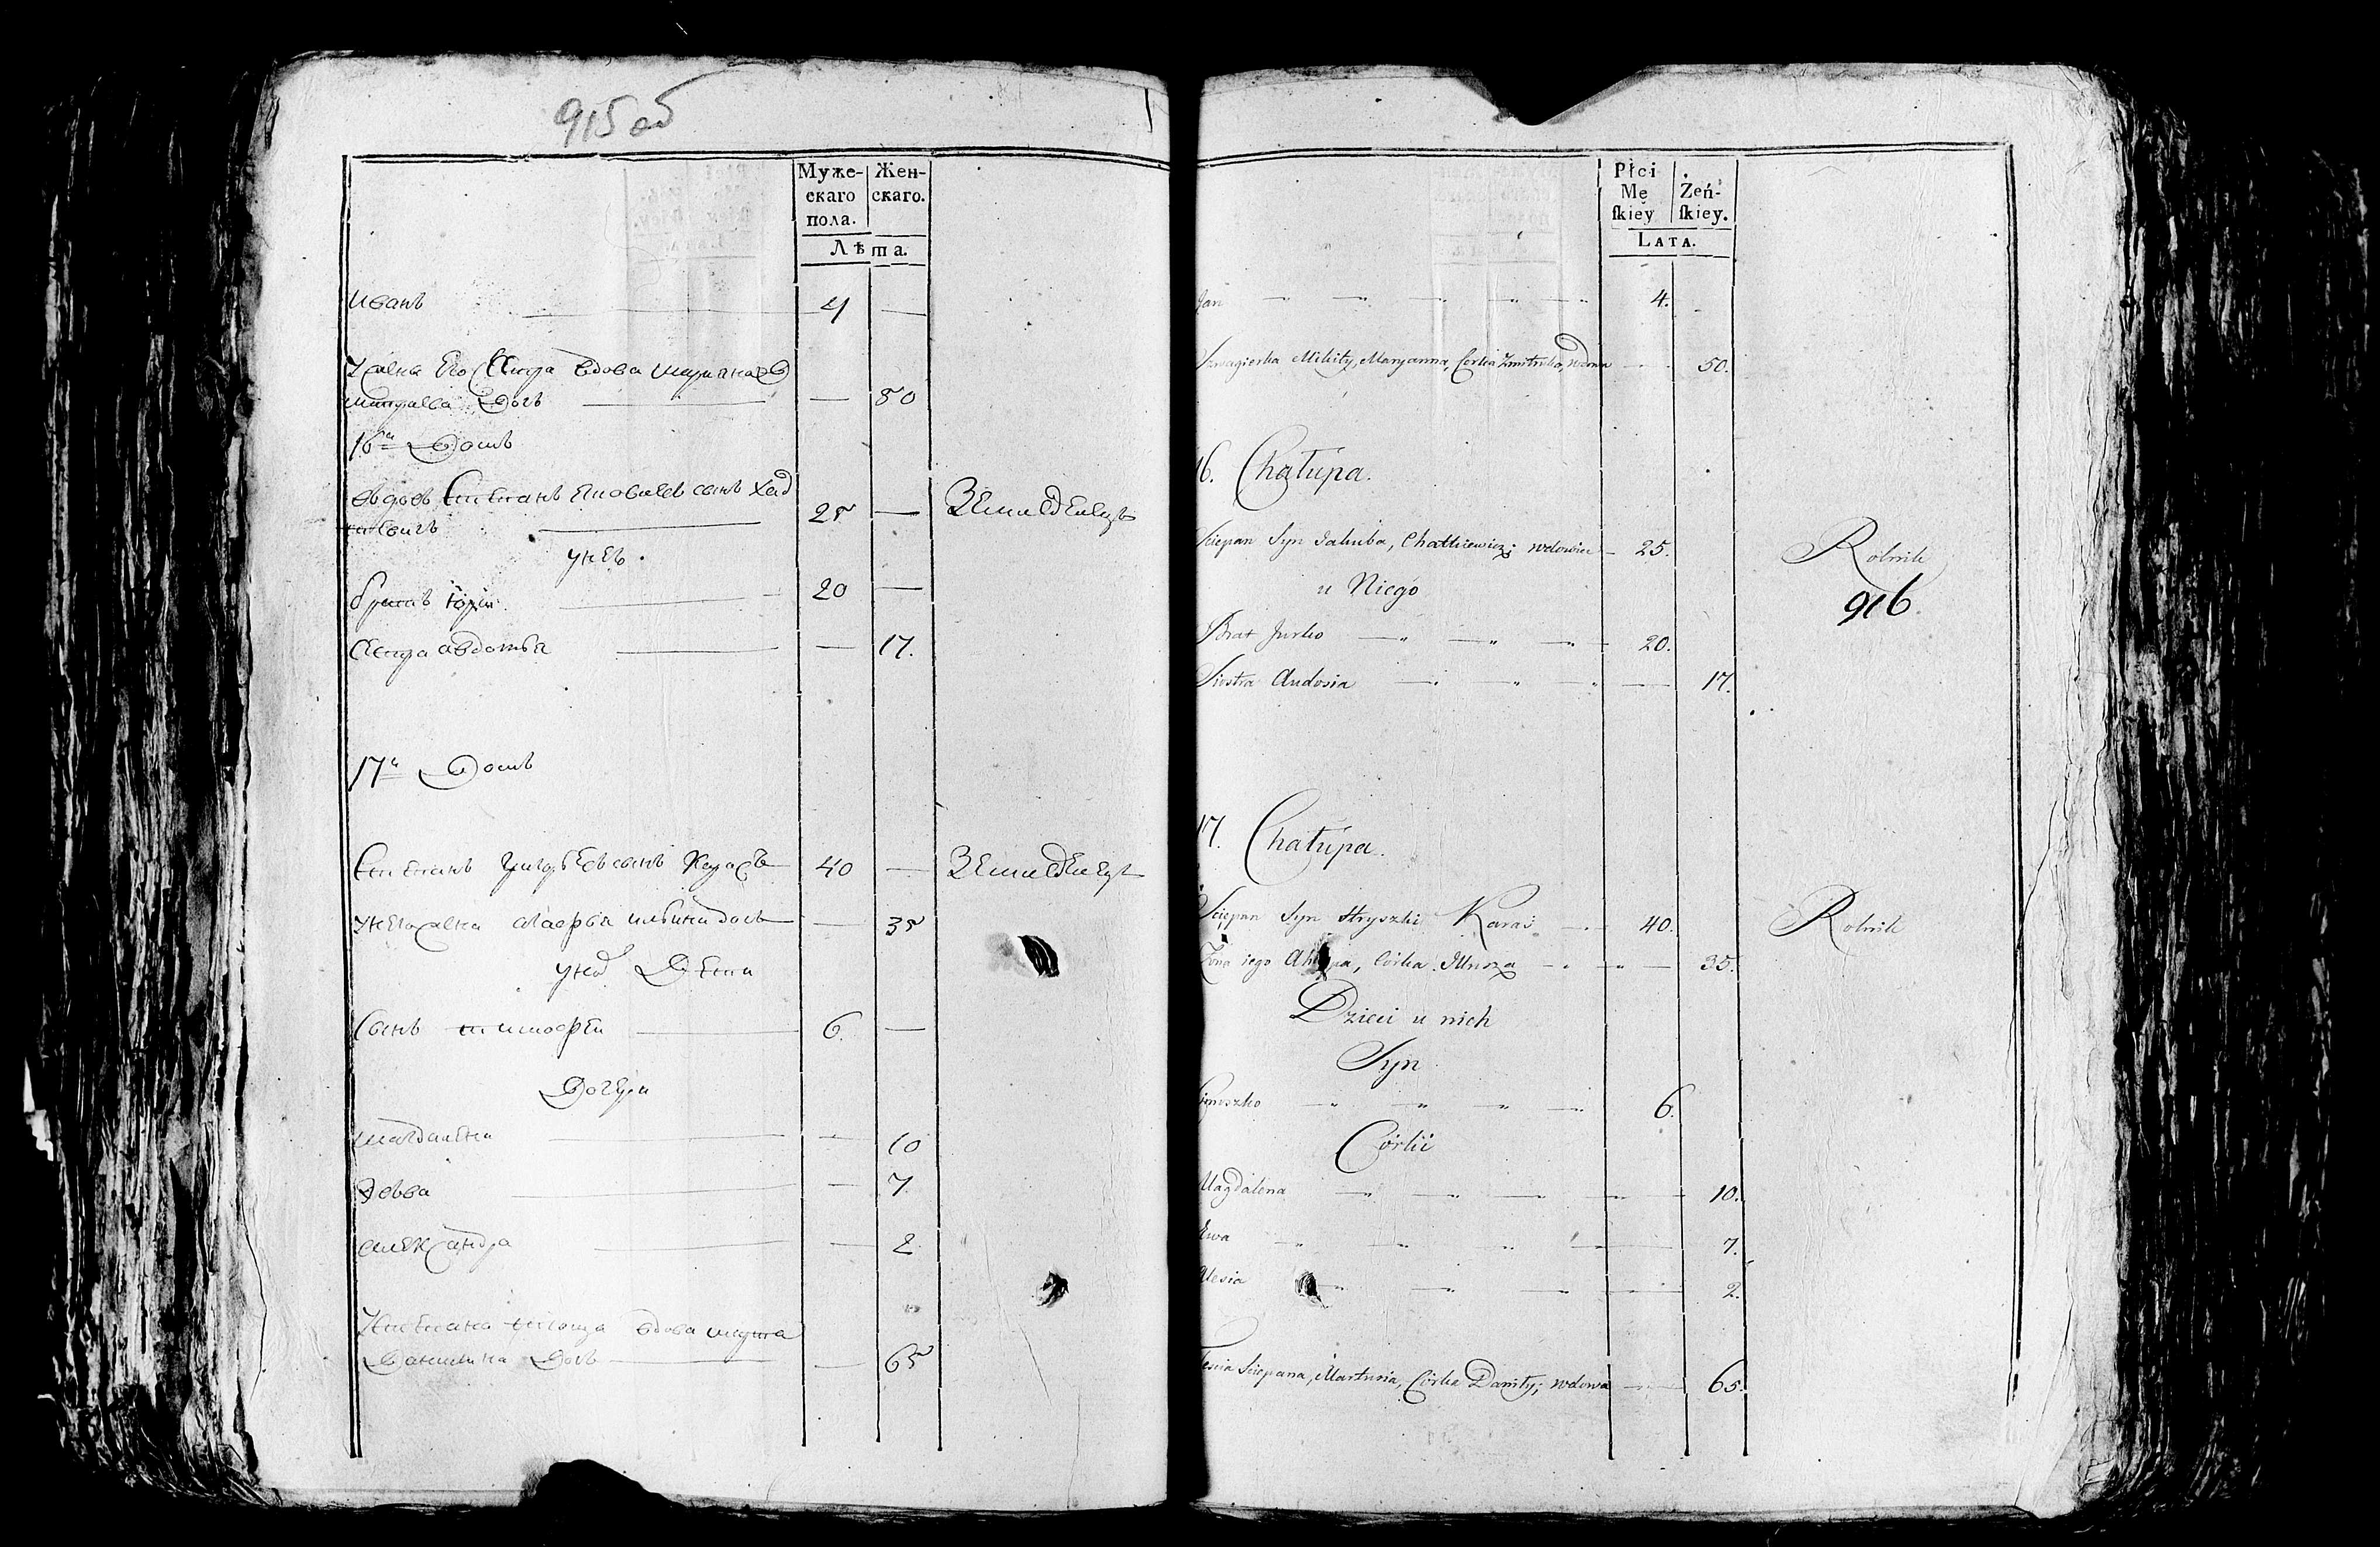 915 об
Муже-
скаго
пола.
Жен-
скаго.
Лѣта.
Иванъ 4 —
вдова
дочь — 50
16й Домъ
вдовъ Степанъ сынъ Хад
кевичъ 25 — Земледелецъ
у не
братъ Юрiи 20 —
Сестра авдотья — 17.
17й Домъ
Степанъ сынъ Карасъ 40 — Земледелецъ
жена дочь — 35
у них Дети
Сынъ тимофеи 6. —
Дочери
магдалена — 10
Эвва — 7.
александра — 2
Степана теща вдова
Данилина Дочь — 65
Płci
Mę
ſkiey
Żeń-
ſkiey.
LATA.
Jan 4.
Szwagierka Mikity, Maryanna, Corka Zmitruka, wdowa 50.
16. Chałupa.
Sciepan Syn Jakuba, Chatkiewicz; wdowiec 25. Rolnik
u Niego
916
Brat Jurko 20.
Siostra Audosia 17.
17. Chałupa.
Sciepan Syn Hryszki Karaś 40. Rolnik
Żona iego Córka 35.
Dzieci u nich
Syn
Cimoszko 6.
Córki
Magdalena 10.
Ewa 7.
Alesia 2.
Teścia Sciepana, Martusia, Córka Daniły; wdowa 65.